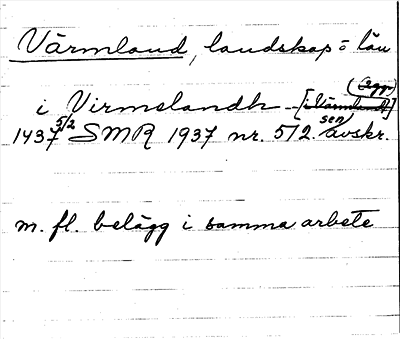 Värmland, landskap o län
(Egpr.)
i Virmslandh [i Värmlandh]
1437 5/2 SMR 1937 nr. 512. sen avskr.
m. fl. belägg i samma arbete